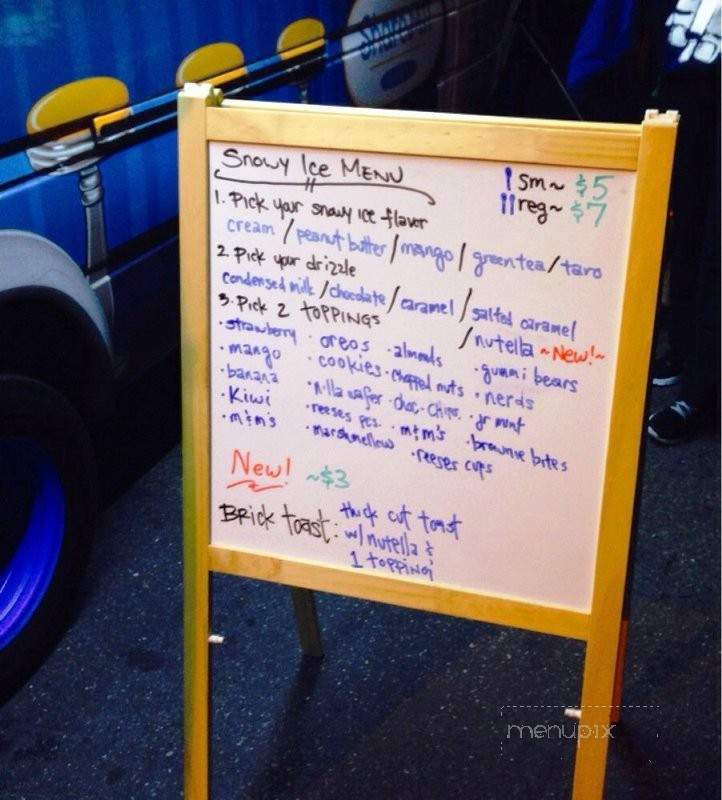 Share
Snowy Ice Menu
sm~ $5
reg~ $7
1. Pick your snowy ice flavor
cream / peanut butter / mango / green tea / taro
2. Pick your drizzle
condensed milk / chocolate / caramel / salted caramel
/ nutella ~New!~
3. Pick 2 Toppings
· strawberry · oreos · almonds · gummi bears
· mango · cookies · chopped nuts · nerds
· banana · nilla wafer · choc. chips · jr mint
· Kiwi · reeses pcs. · m&m's · brownie bites
· m&m's · marshmellow · reeses cups
New! ~$3
Brick toast: thick cut toast
w/ nutella &
1 topping
menupix